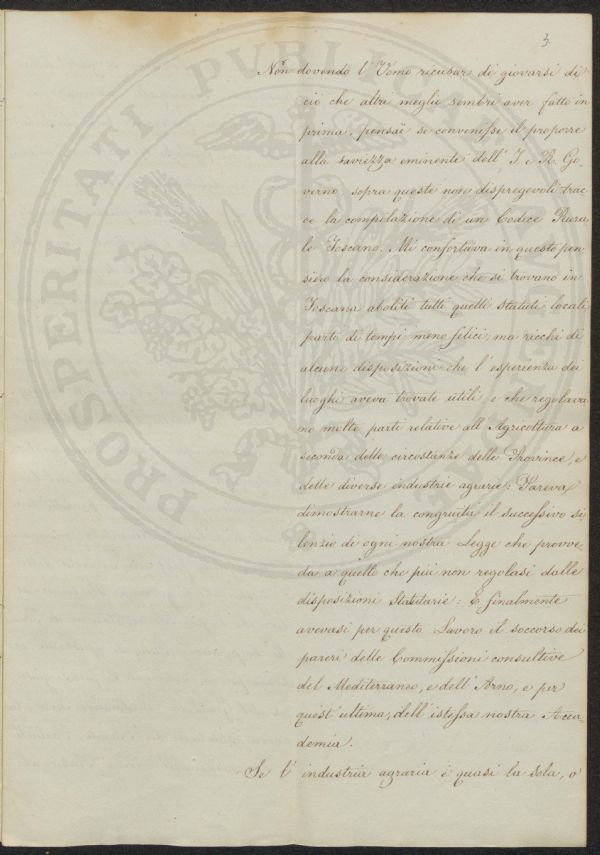 3.
Non dovendo l'Uomo ricusar di giovarsi di
ciò che altri meglio sembri aver fatto in
prima, pensai si convenisse il proporre
alla saviezza eminente dell'I. e R. Go-
verno, sopra queste non dispregevoli trac-
ce la compilazione di un Codice Rura-
le Toscano. Mi confortava in questo pen-
siero la considerazione che si trovano in
Toscana aboliti tutti quelli statuti locali
parto di tempi meno felici, ma ricchi di
alcune disposizioni che l'esperienza dei
luoghi aveva trovate utili, e che regolava-
no molte parti relative all'Agricoltura a
seconda delle circostanze delle Province, e
delle diverse industrie agrarie: Pareva
dimostrarne la congruità il successivo si-
lenzio di ogni nostra Legge che provve-
da a quello che più non regolasi dalle
disposizioni Statutarie: E finalmente
avevasi per questo Lavoro il soccorso dei
pareri delle Commissioni consultive
del Mediterraneo, e dell'Arno, e per
quest'ultima, dell'istessa nostra Acca-
demia.
Se l'industria agraria è quasi la sola, o
PROSPERITATI PVBLICAE